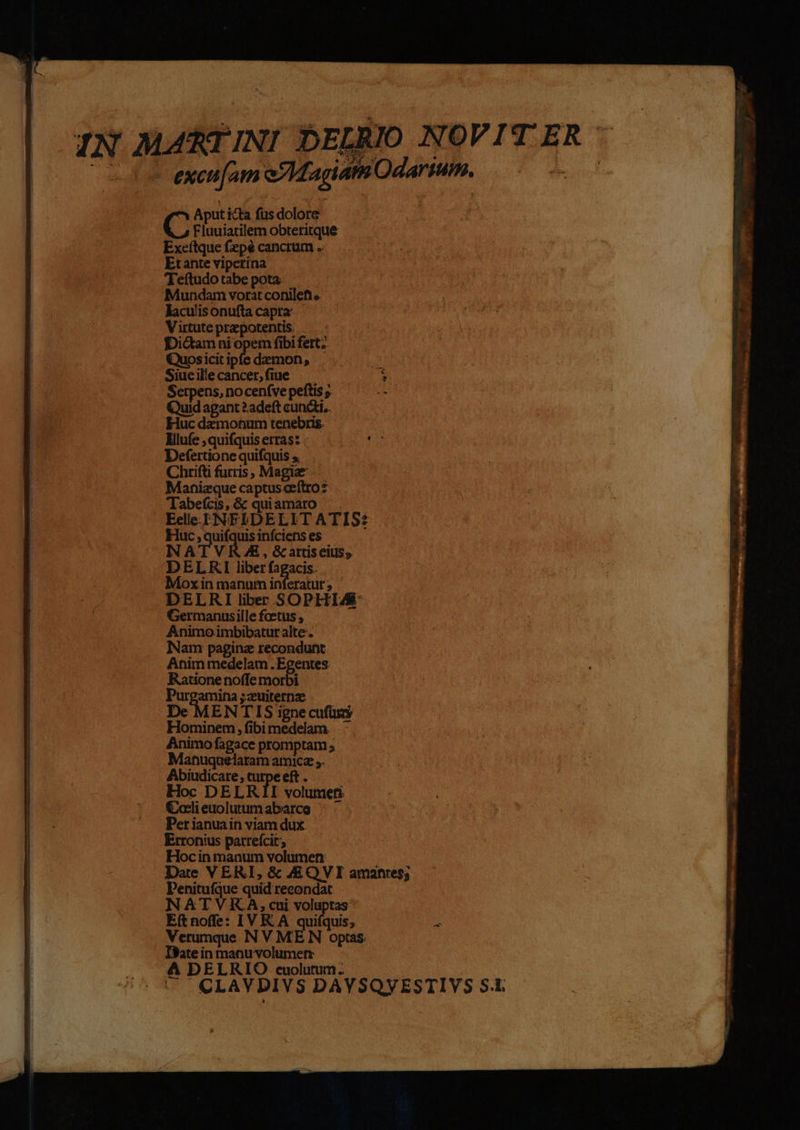 IN MARTINI DELRIO NOVITER
excuſam Magiam Odarium.
CAput icta fus dolore
Fluuiatilem obteritque
Exeſtque ſæpè cancrum.
Et ante viperina
Teſtudo tabe pota
Mundam vorat conilen.
Iaculis onuſta capra
Virtute præpotentis
Dictam ni opem ſibi fert:
Quos icit ipſe dæmon,
Siue ille cancer, ſiue
Serpens, no cenſve peſtis;
Quid agant? adeſt cuncti.
Huc dæmonum tenebris
Illuſe, quiſquis erras:
Deſertione quiſquis,
Chriſti furris, Magiæ
Maniæque captus œſtro:
Tabeſcis, & qui amaro
Felle INFIDELITATIS:
Huc, quiſquis inſciens es
NATVRÆ, & artis eius,
DELRI liber ſagacis.
Mox in manum inferatur,
DELRI liber SOPHIÆ
Germanus ille fœtus,
Animo imbibatur altè.
Nam paginæ recondunt
Anim medelam. Egentes
Ratione noſſe morbi
Purgamina; æuiternæ
De MENTIS igne cuſum
Hominem, ſibi medelam
Animo ſagace promptam,
Manuque latam amicæ,
Abiudicare, turpe eſt.
Hoc DELRII volumen
Cœli euolutum ab arce
Per ianua in viam dux
Erronius patreſcit,
Hoc in manum volumen
Date VERI, & ÆQVI amantes;
Penituſque quid recondat
NATVRA, cui voluptas
Eſt noſſe: IVRA quiſquis,
Verumque NVMEN optas
Date in manu volumen
A DELRIO euolutum.
CLAVDIVS DAVSQVESTIVS S.I.